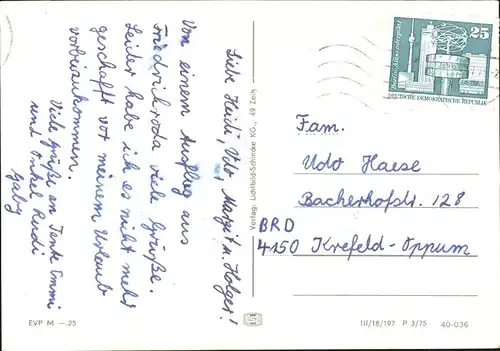 Liebe Heidi, Udo, Margit u. Holger!
Von einem Ausflug aus
Friedrichroda viele Grüße.
Leider habe ich es nicht mehr
geschafft vor meinem Urlaub
vorbeizukommen.
Viele Grüße an Tante Emmi
und Onkel Rudi
Gaby
EVP M —.25
Verlag: Lichtbild-Schincke KG., 49 Zeitz
25
Berlin-Alexanderplatz
DEUTSCHE DEMOKRATISCHE REPUBLIK
Fam.
Udo Haese
Bacherhofstr. 128
BRD
4150 Krefeld-Oppum
III/18/197 P 3/75 40-036